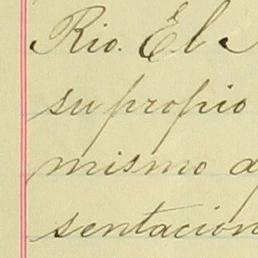 Rio. El
su propio
mismo
sentacion